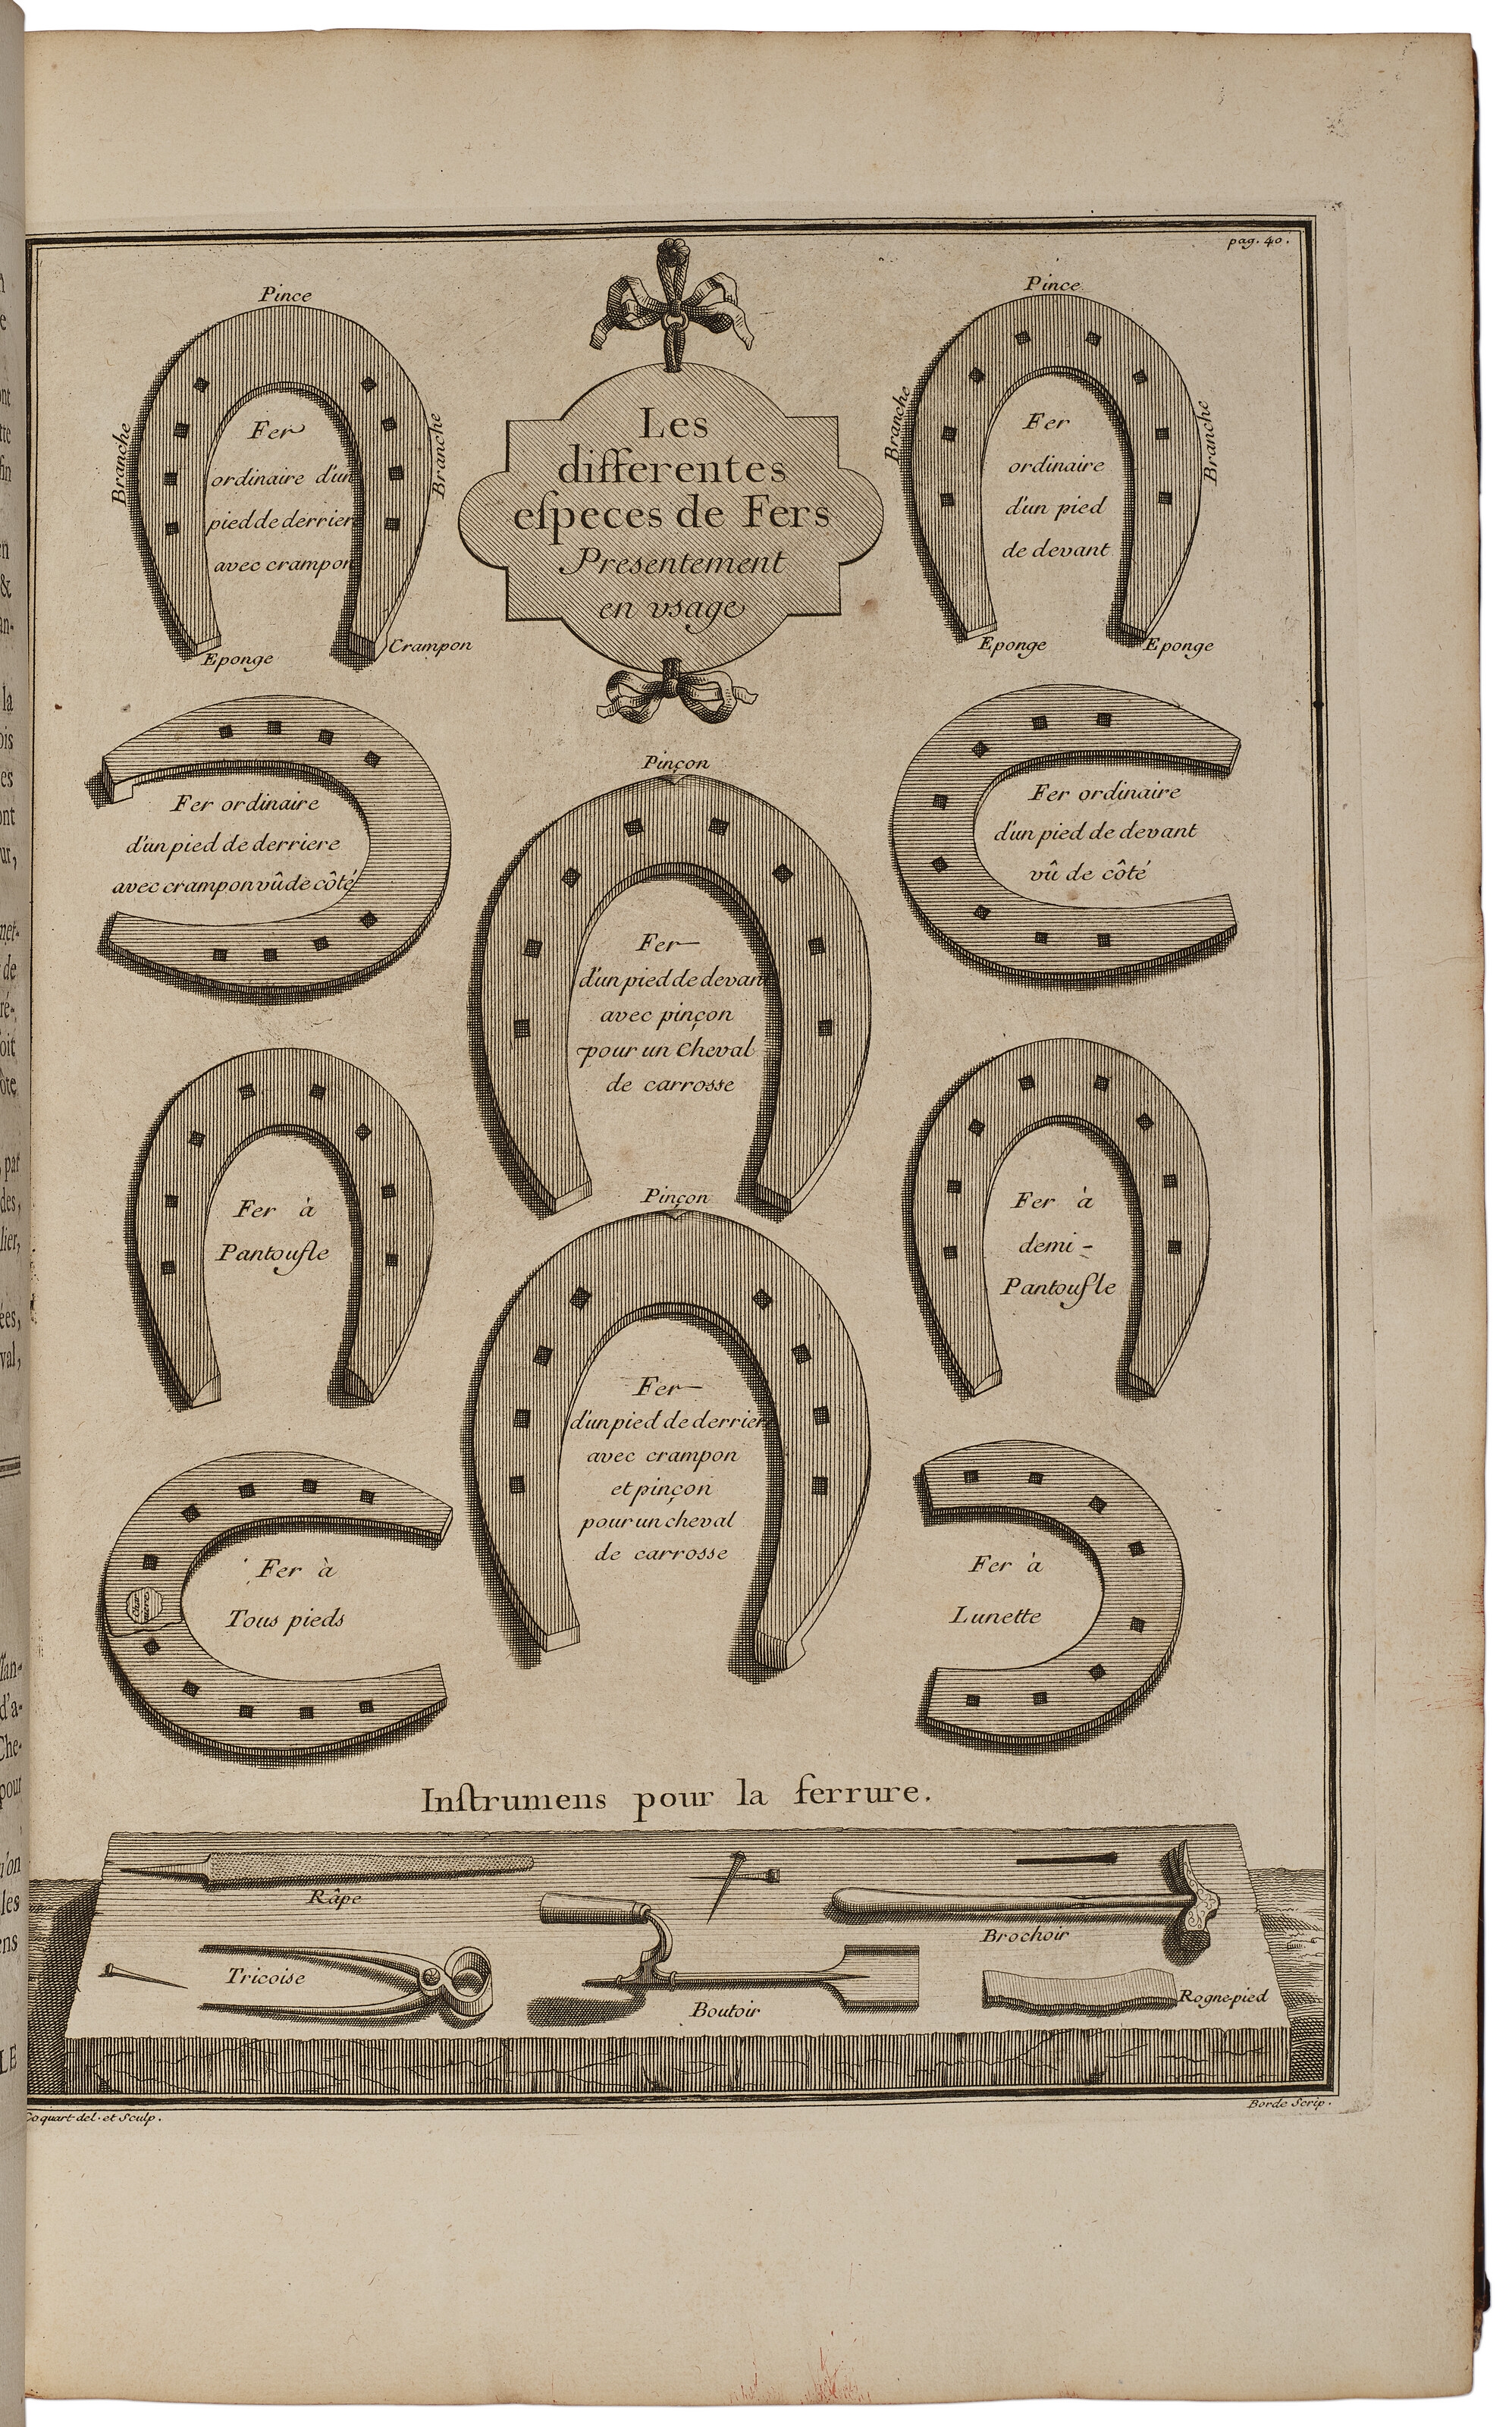 pag. 40.
Pince
Branche
Branche
Fer
ordinaire d'un
pied de derrier
avec crampon
Eponge
Crampon
Les
differentes
eſpeces de Fers
Presentement
en vsage
Pince
Branche
Branche
Fer
ordinaire
d'un pied
de devant
Eponge
Eponge
Fer ordinaire
d'un pied de derriere
avec crampon vû de côté
Pinçon
Fer
d'un pied de devant
avec pinçon
pour un Cheval
de carrosse
Fer ordinaire
d'un pied de devant
vû de côté
Fer à
Pantoufle
Pinçon
Fer
d'un pied de derrier
avec crampon
et pinçon
pour un cheval
de carrosse
Fer à
demi-
Pantoufle
Fer à
Tous pieds
Fer à
Lunette
Inſtrumens pour la ferrure.
Râpe
Brochoir
Tricoise
Boutoir
Rognepied
Coquart del. et Sculp.
Borde Scrip.